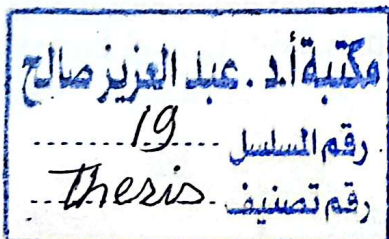 مكتبة أ.د. عبد العزيز صالح
رقم المسلسل ......19......
رقم تصنيف ..Thesis..